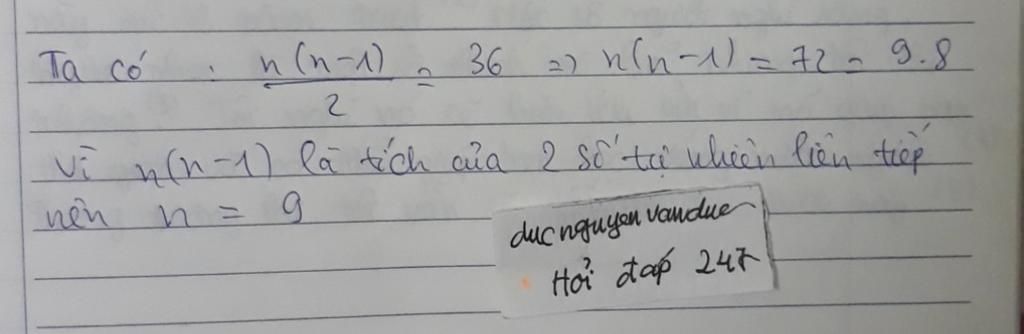 Ta có : n(n-1)/2 = 36 => n(n-1) = 72 = 9.8
Vì n(n-1) là tích của 2 số tự nhiên liên tiếp
nên n = 9
ducnguyenvanduc
Hỏi đáp 247